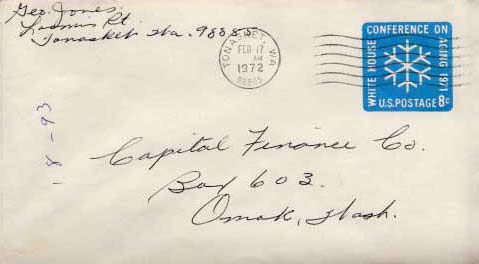 Geo. Jones.
Loomis Rt.
Tonasket Wa. 98855
TONASKET, WA
FEB 17
AM
1972
98855
WHITE HOUSE CONFERENCE ON AGING 1971
U.S. POSTAGE 8c
18-93
Capital Finance Co.
Box 603.
Omak, Wash.